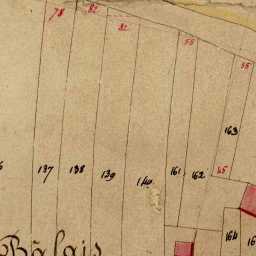 78
82
81
55
55
163
137
138
139
140
161
162
45
164
Bâlais